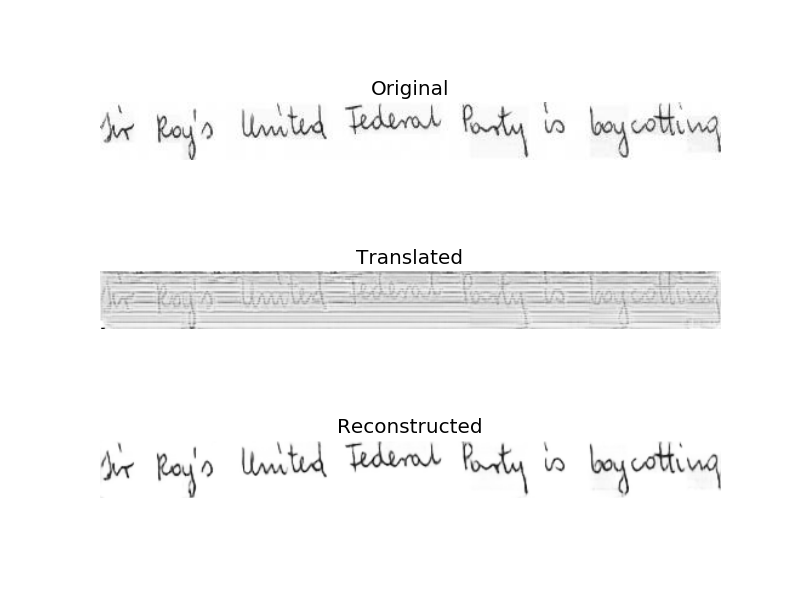 Original
Sir Roy's United Federal Party is boycotting
Translated
Sir Roy's United Federal Party is boycotting
Reconstructed
Sir Roy's United Federal Party is boycotting